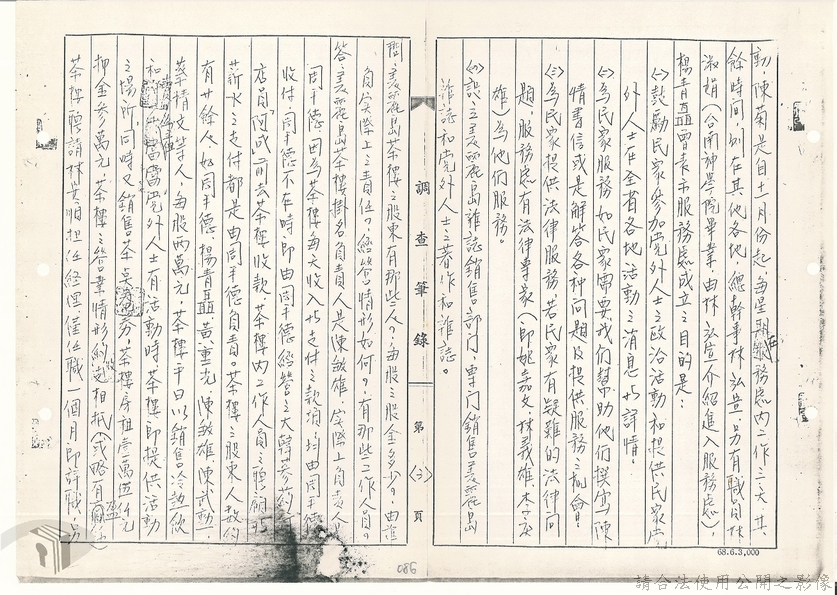 動，陳菊是自十一月份起，每星期在服務處內工作三天，其
餘時間則在其他各地，總幹事林弘宣，另有職員林
淑娟（台南神學院畢業，由林弘宣介紹進入服務處），
楊青矗曾表示服務處成立之目的是：
㈠鼓勵民眾參加黨外人士之政治活動和提供民眾黨
外人士在全省各地活動之消息與詳情。
㈡為民眾服務，如民眾需要我們幫助他們撰寫陳
情書信或是解答各種問題及提供服務之機會。
㈢為民眾提供法律服務，若民眾有疑難的法律問
題，服務處有法律專家（即姚嘉文、林義雄
雄）為他們服務。
㈣設立美麗島雜誌銷售部門，專門銷售美麗島
雜誌和黨外人士之著作和雜誌。
調查筆錄
第㈢頁
問：美麗島茶樓之股東有那些人？每股之股金多少？由誰
負實際上之責任？經營情形如何？有那些工作人員？
答：美麗島茶樓掛名負責人是陳敏雄，實際上負責人
周平德，因為茶樓每天收入與支付之款項均由周平德
收付，周平德不在時即由周平德經營之大韓參葯行
店員「阿成」前去茶樓收款，茶樓內工作人員之聘請與
薪水之支付都是由周平德負責。茶樓之股東人數約
有廿餘人，如周平德、楊青矗、黃重光、陳敏雄、陳武勳、
蔡精文等人，每股兩萬元，茶樓平日以銷售冷熱飲
和 黨外人士有活動時茶樓即提供活動
之場所，同時又銷售茶 ，茶樓房租壹萬伍仟元
押金參萬元，茶樓之營業情形收支相抵（或略有盈
茶樓聘請林黃怡擔任經理僅任職一個月即辭職，另
68.6.3,000
086
請合法使用公開之影像